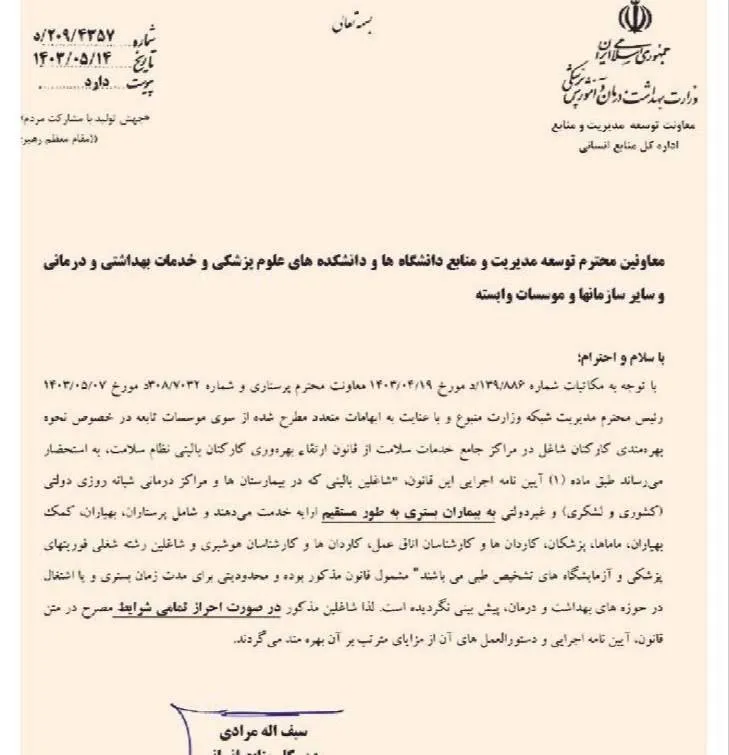 بسمه تعالی
جمهوری اسلامی ایران
وزارت بهداشت درمان و آموزش پزشکی
معاونت توسعه مدیریت و منابع
اداره کل منابع انسانی
شماره ۲۰۹/۴۳۵۷/د
تاریخ ۱۴۰۳/۰۵/۱۴
پیوست دارد
«جهش تولید با مشارکت مردم»
((مقام معظم رهبر
معاونین محترم توسعه مدیریت و منابع دانشگاه ها و دانشکده های علوم پزشکی و خدمات بهداشتی و درمانی
و سایر سازمانها و موسسات وابسته
با سلام و احترام؛
با توجه به مکاتبات شماره ۱۳۹/۸۸۶/د مورخ ۱۴۰۳/۰۴/۱۹ معاونت محترم پرستاری و شماره ۳۰۸/۷۰۳۲د مورخ ۱۴۰۳/۰۵/۰۷
رئیس محترم مدیریت شبکه وزارت متبوع و با عنایت به ابهامات متعدد مطرح شده از سوی موسسات تابعه در خصوص نحوه
بهره‌مندی کارکنان شاغل در مراکز جامع خدمات سلامت از قانون ارتقاء بهره‌وری کارکنان بالینی نظام سلامت، به استحضار
می‌رساند طبق ماده (۱) آیین نامه اجرایی این قانون، "شاغلین بالینی که در بیمارستان ها و مراکز درمانی شبانه روزی دولتی
(کشوری و لشکری) و غیردولتی به بیماران بستری به طور مستقیم ارایه خدمت می‌دهند و شامل پرستاران، بهیاران، کمک
بهیاران، ماماها، پزشکان، کاردان ها و کارشناسان اتاق عمل، کاردان ها و کارشناسان هوشبری و شاغلین رشته شغلی فوریتهای
پزشکی و آزمایشگاه های تشخیص طبی می باشند" مشمول قانون مذکور بوده و محدودیتی برای مدت زمان بستری و یا اشتغال
در حوزه های بهداشت و درمان، پیش بینی نگردیده است. لذا شاغلین مذکور در صورت احراز تمامی شرایط مصرح در متن
قانون، آیین نامه اجرایی و دستورالعمل های آن از مزایای مترتب بر آن بهره مند می‌گردند.
سیف اله مرادی